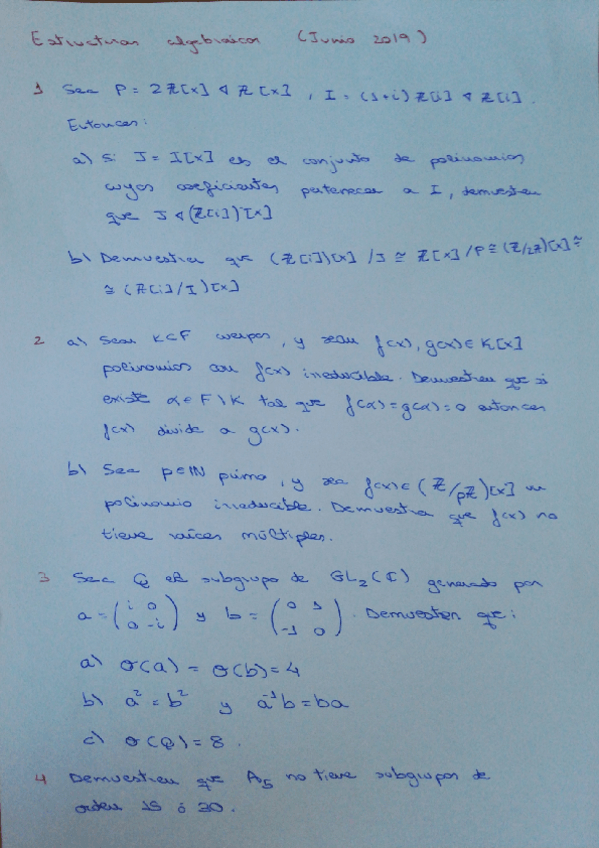 Estructuras algebraicas (Junio 2019)
1 Sea P = 2ℤ[x] ◁ ℤ[x], I = (1+i)ℤ[i] ◁ ℤ[i].
Entonces:
a) Si J = I[x] es el conjunto de polinomios
cuyos coeficientes pertenecen a I, demuestra
que J ◁ (ℤ[i])[x]
b) Demuestra que (ℤ[i])[x]/J ≅ ℤ[x]/P ≅ (ℤ/2ℤ)[x] ≅
≅ (ℤ[i]/I)[x]
2 a) Sean K⊂F cuerpos, y sean f(x), g(x) ∈ K[x]
polinomios con f(x) irreducible. Demuestra que si
existe α ∈ F\K tal que f(α)=g(α)=0 entonces
f(x) divide a g(x).
b) Sea p∈ℕ primo, y sea f(x)∈(ℤ/pℤ)[x] un
polinomio irreducible. Demuestra que f(x) no
tiene raíces múltiples.
3 Sea Q el subgrupo de GL₂(ℂ) generado por
a = (i 0; 0 -i) y b = (0 1; -1 0). Demuestra que:
a) σ(a) = σ(b) = 4
b) a² = b² y a⁻¹b = ba
c) σ(Q) = 8.
4 Demuestra que A₅ no tiene subgrupos de
orden 15 ó 30.